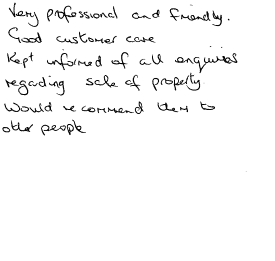 Very professional and friendly.
Good customer care
Kept informed of all enquiries
regarding sale of property
Would recommend them to
other people